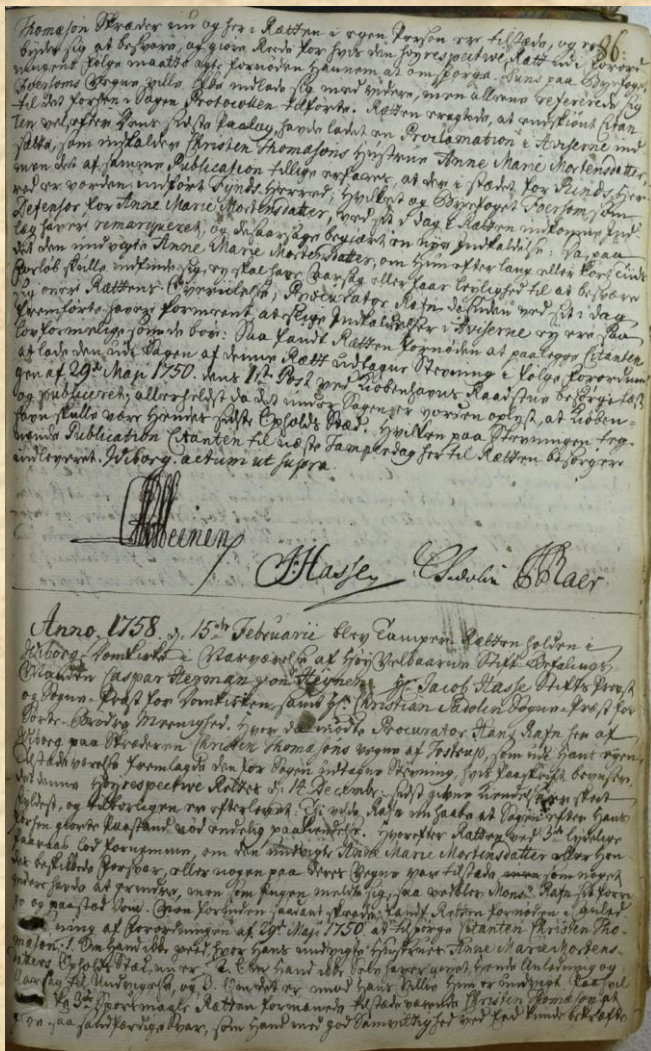 Thomason Skræder nu og her i Rætten i egen Person er tilstæde, og er
byder sig at besvare, og giøre Reede for hvis den høyrespective Rætt udi Forord 86:
ningens følge maatte agte fornøden hannem at om spørge. Huus paa Byefoget
Foersoms Vegne ville ikke indlade sig med videre, men alleene refererede sig
til det forhen i Sagen Protocollen tilførte. Rætten eragtede, at endskiønt Citan
ten vel efter dens sidste Paalæg, havde ladet en Proclamation i Aviserne ind
satte, som indkalder Christen Thomasøns Hustrue Anne Marie Mortensdatter,
men det af samme Publication tillige erfares, at der i stædet for Rinds Her-
red er vorden indført Fynds-Herred; hvilket og Byefoget Foersom som
Defensor for Anne Marie Mortensdatter, ved sit i dag i Rætten indkomne Ind-
læg haver remarqveret, og desaarsage begiært en nye Indkaldelse; da, paa
det den undvigte Anne Marie Mortensdatter, om hun efter lang eller kort tiids
Forløb skulle indfinde sig, ey skal have Aarsag eller faae leylighed til at besvære
sig over Rættens Overiilelse; Procurator Rafn desuden ved sit i dag
fremførte haver formeent, at slige Indkaldelser i Aviserne ey ere saa
lovformelige som de bør: Saa fandt Rætten fornøden at paalegge Citanten
at lade den udi Sagen af denne Rætt udtagne Stevning i følge Forordnin
gen af 29de Maji 1750. dens 1ste Post ved Kiøbenhavns Raadstue besørge læst
og publiceret, allerhelst da det under Sagen er vorden oplyst, at Kiøben-
havn skulle være hendes sidste Opholds Stæd. Hvilken paa Stevningen teg-
nende Publication Citanten til næste Tamperdag her til Rætten besørger
indleveret. Wiborg. actum ut supra
J: Hassen C Sadolin
Anno. 1758. d. 15de Februarii blev Tamper-Rætten holden i
Wiborg-Domkirke i Nærværelse af Høy Velbaarne Stift-Befalings
Manden Caspar Herman von Heynen, Hr. Jacob Hasse Stifts Prost
og Sogne-Præst for Domkirken, samt Hr. Christian Sadolin Sogne-Præst for
Sorte-Brødre Meenighed. Hvor da mødte Procurator Hans Rafn her af
Wiborg paa Skræderen Christen Thomasøns vegne af Tostrup, som udi Hans egen
tilstædeværelse fremlagde den for Sagen udtagne Stevning, hvis Paaskrift beviiser,
at denne Høyrespective Rettes d. 14 Decembr. sidst givne Kiendelse er skeet
fyldest, og Tiltorlagen er efterlevet. Thi vilde Rafn nu haabe at Sagen efter Hans
forhen giorte Paastand nød endelig paakiendelse. Hvorefter Rætten ved 3de lydelige
Paaraab lod fornemme, om den undvigte Anne Marie Mortensdatter eller hen-
des beskikkede Forsvar, eller nogen paa deres Vegne var tilstæde, som noget
videre havde at erindre, men om Ingen meldte sig, saa vedblev Monsr. Rafn sit forri
ge og paastod Dom. Men forinden saadant skeede, fandt Retten fornøden i Anled
ning af Forordningen af 29de Maji 1750 at tilspørge Citanten Christen Tho
mason. 1. Om Hand ikke veed, hvor Hans undvigte Hustrue Anne Marie Mortens-
datters Opholds Stæd nu er. 2. Om Hand ikke selv haver givet hende Anledning og
Aarsag til Undvigelse, og 3. Om det er med Hans Villie Hun er undvigt. Paa
3de Spørsmaale Rætten formanede tilstædeværende Christen Thomasøn at
give saa sandfærdige Svar, som Hand med god Samvittighed ved Eed kunde bekræfte